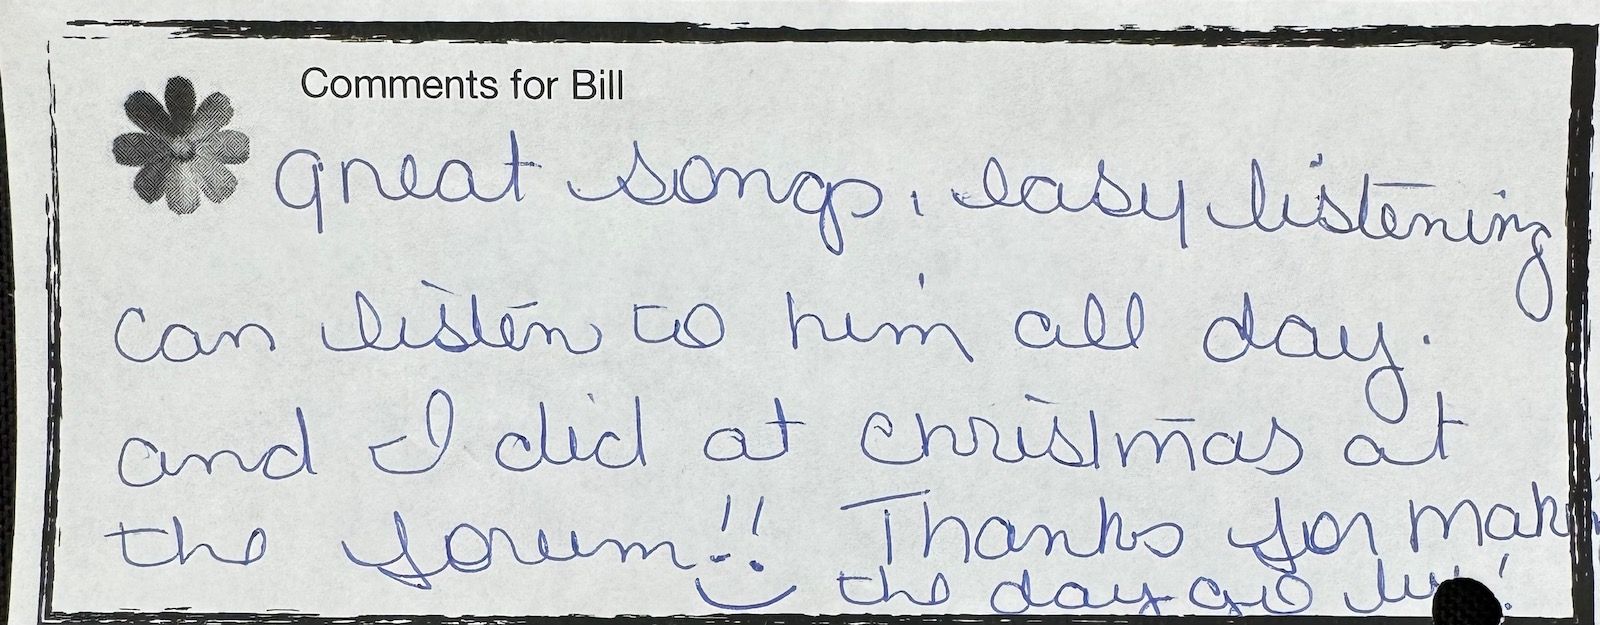 Comments for Bill
great songs, easy listening
can listen to him all day.
and I did at christmas at
the forum!! Thanks for makin
the day go by!